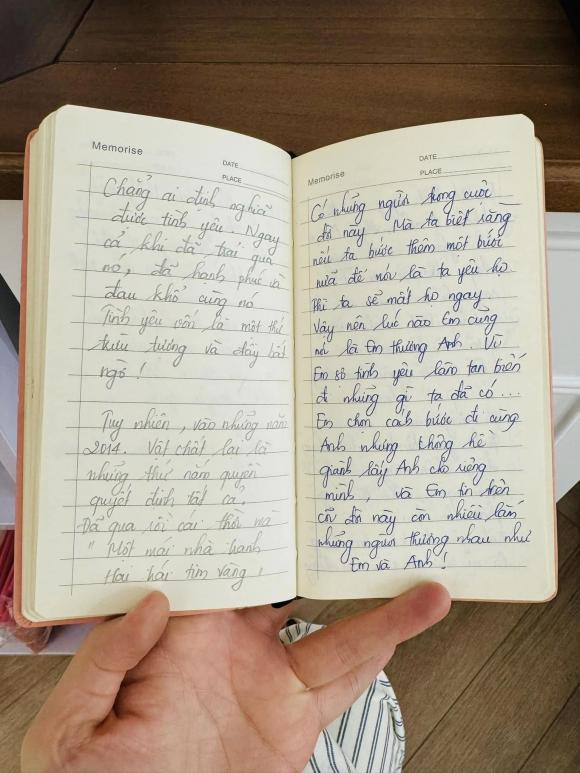 Memorise
DATE
PLACE
Chẳng ai định nghĩa
được tình yêu. Ngay
cả khi đã trải qua
nó, đã hạnh phúc và
đau khổ cùng nó
Tình yêu vốn là một thứ
trừu tượng và đầy bất
ngờ!
Tuy nhiên, vào những năm
2014. Vật chất lại là
những thứ nắm quyền
quyết định tất cả.
Đã qua rồi cái thời mà
" Một mái nhà tranh
Hai trái tim vàng "
Memorise
DATE
PLACE
Có những người trong cuộc
đời này. Mà ta biết rằng
nếu ta bước thêm một bước
nữa để nói là ta yêu họ
Thì ta sẽ mất họ ngay.
Vậy nên lúc nào Em cũng
nói là Em thương Anh. Vì
Em sợ tình yêu làm tan biến
đi những gì ta đã có ...
Em chọn cách bước đi cùng
Anh nhưng không hề
giành lấy Anh cho riêng
mình, và Em tin trên
cõi đời này còn nhiều lắm
những người thương nhau như
Em và Anh!